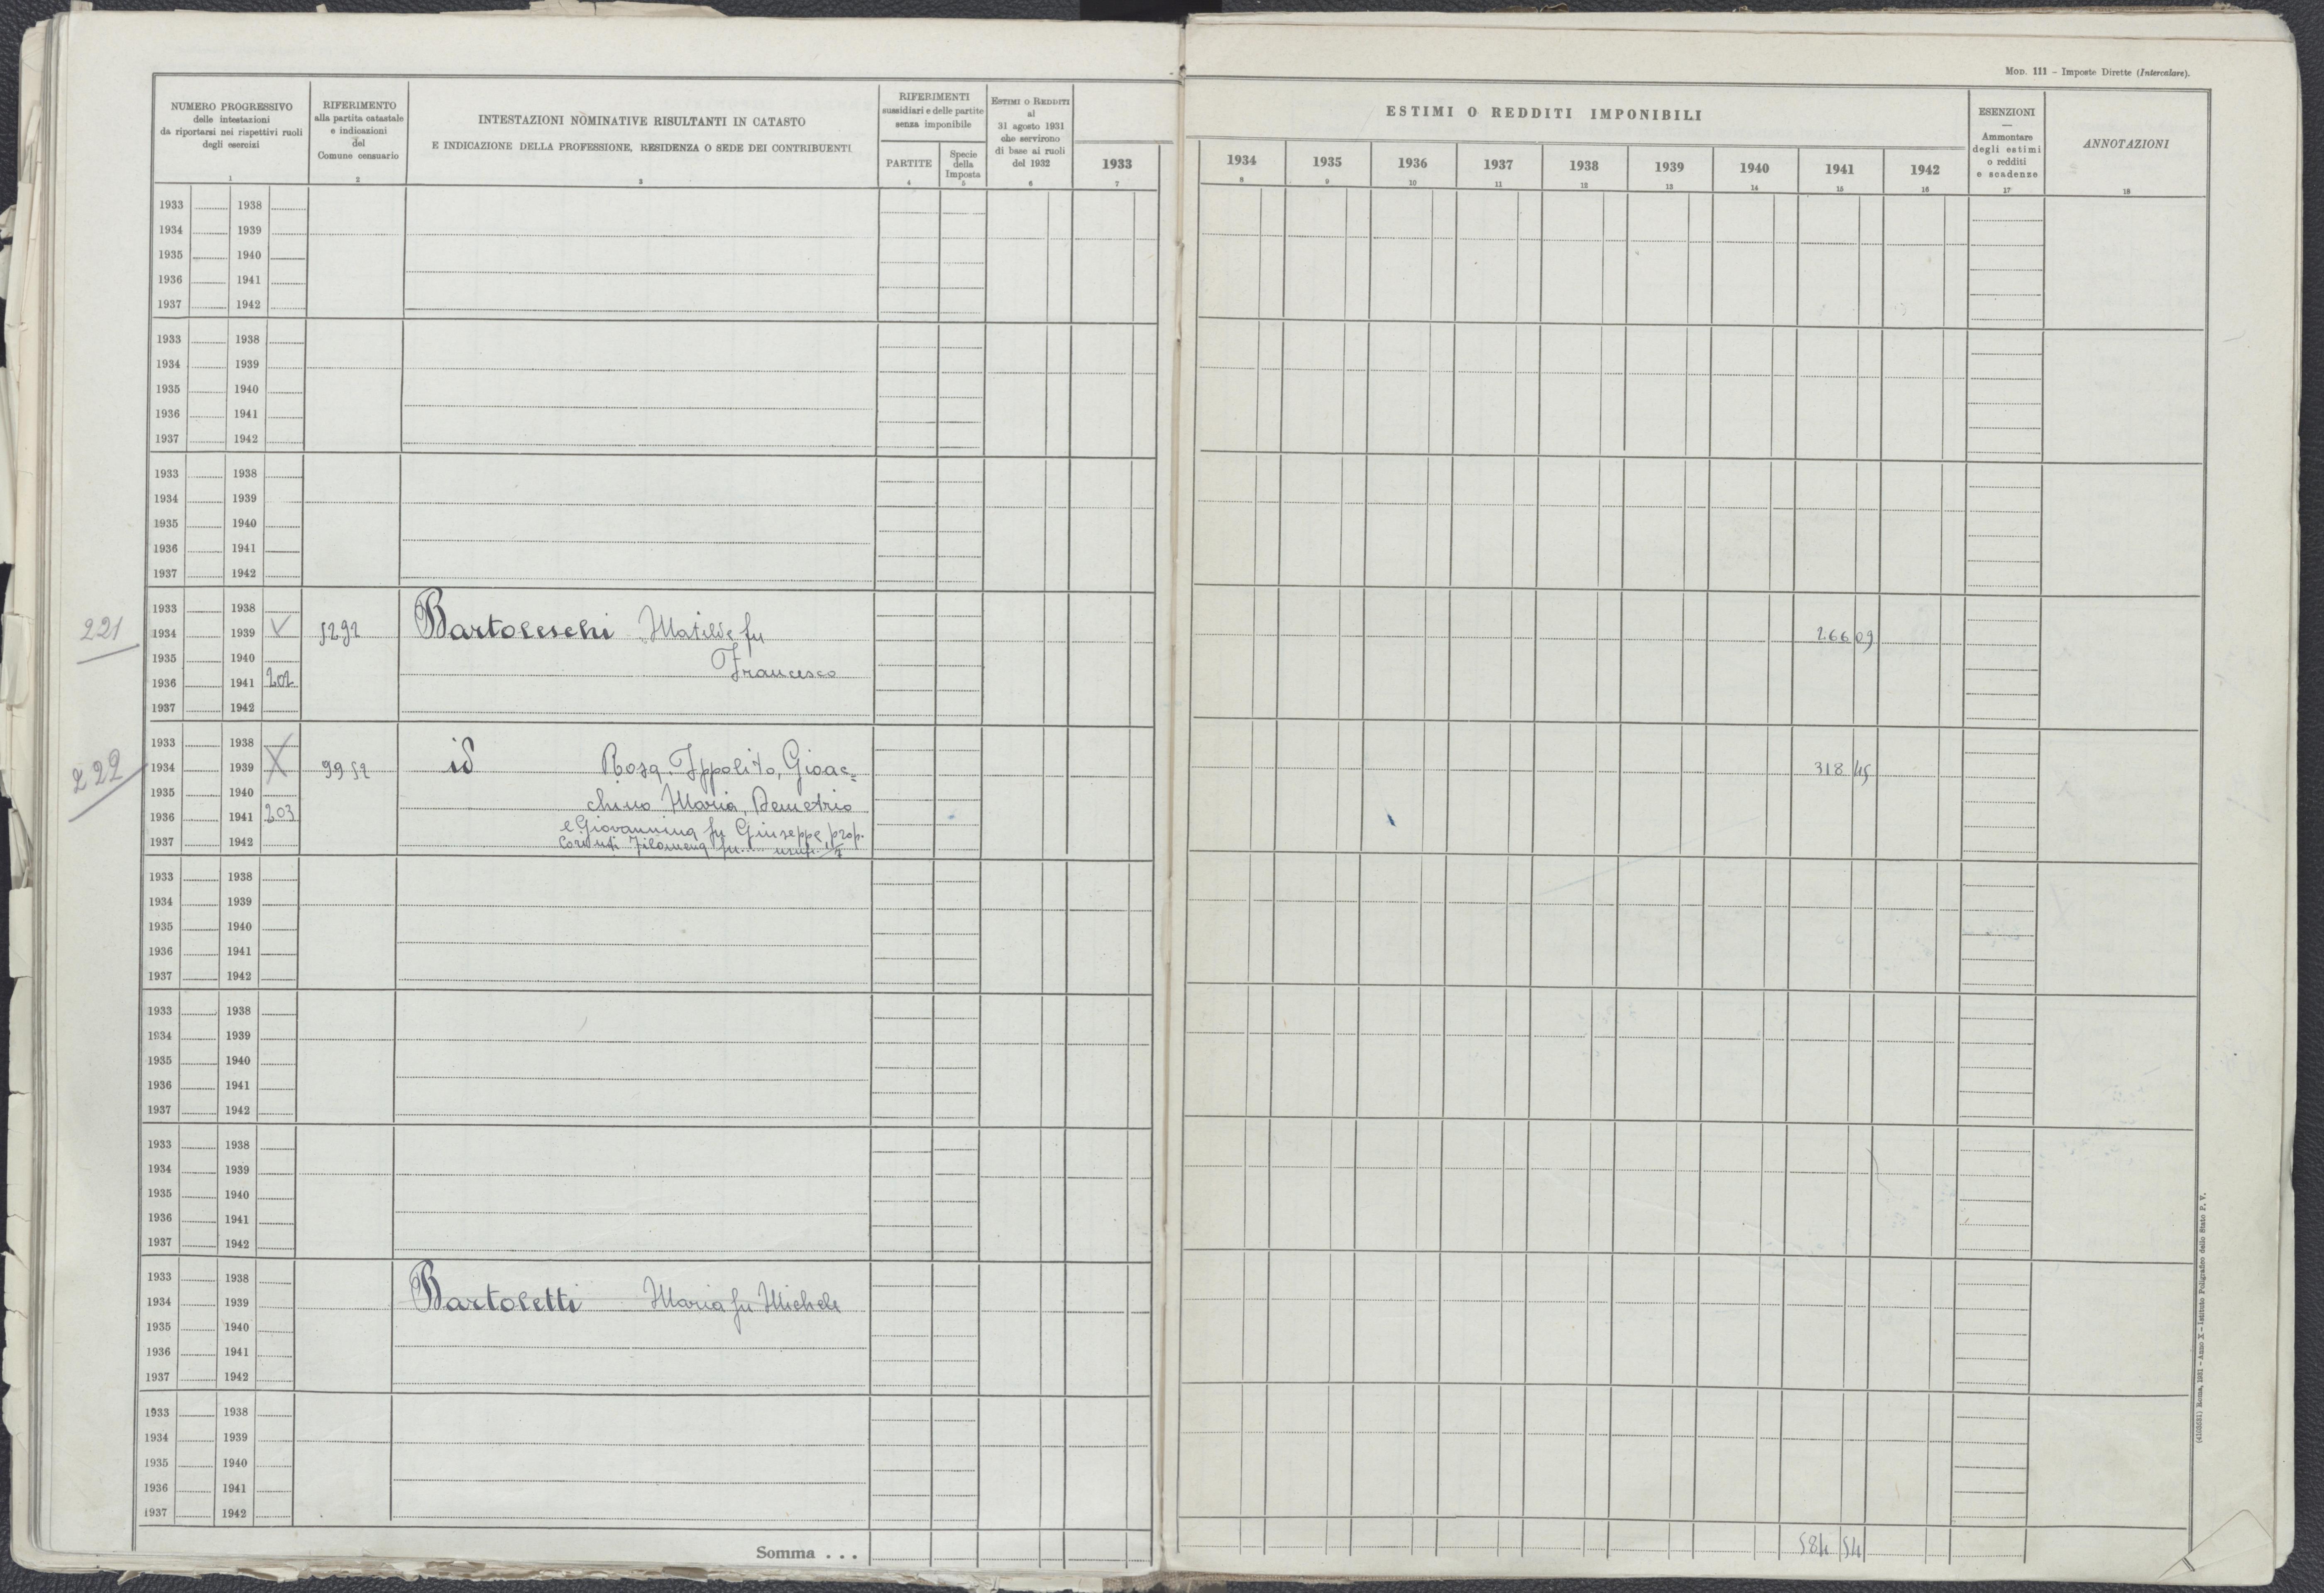 Mod. 111 – Imposte Dirette (Intercalare).
NUMERO PROGRESSIVO
delle intestazioni
da riportarsi nei rispettivi ruoli
degli esercizi
1
RIFERIMENTO
alla partita catastale
e indicazioni
del
Comune censuario
2
INTESTAZIONI NOMINATIVE RISULTANTI IN CATASTO
E INDICAZIONE DELLA PROFESSIONE, RESIDENZA O SEDE DEI CONTRIBUENTI
3
RIFERIMENTI
sussidiari e delle partite
senza imponibile
PARTITE
4
Specie
della
Imposta
5
Estimi o Redditi
al
31 agosto 1931
che servirono
di base ai ruoli
del 1932
6
1933
7
ESTIMI O REDDITI IMPONIBILI
1934 1935 1936 1937 1938 1939 1940 1941 1942
8 9 10 11 12 13 14 15 16
ESENZIONI
—
Ammontare
degli estimi
o redditi
e scadenze
17
ANNOTAZIONI
18
1933 1938
1934 1939
1935 1940
1936 1941
1937 1942
1933 1938
1934 1939
1935 1940
1936 1941
1937 1942
1933 1938
1934 1939
1935 1940
1936 1941
1937 1942
1933 1938
221 1934 1939 5292 Bartoleschi Matilde fu 266 09
1935 1940 Francesco
1936 1941 202
1937 1942
1933 1938
222 1934 1939 9952 id Rosa, Ippolito, Gioac= 318 45
1935 1940 chino Maria, Demetrio
1936 1941 203 e Giovannina fu Giuseppe prop.
1937 1942 Filomena fu..... usuf.
1933 1938
1934 1939
1935 1940
1936 1941
1937 1942
1933 1938
1934 1939
1935 1940
1936 1941
1937 1942
1933 1938
1934 1939
1935 1940
1936 1941
1937 1942
1933 1938
1934 1939 Bartoletti Maria fu Michele
1935 1940
1936 1941
1937 1942
1933 1938
1934 1939
1935 1940
1936 1941
1937 1942
Somma . . . 584 54
Roma, 1931 – Anno X – Istituto Poligrafico dello Stato P. V.